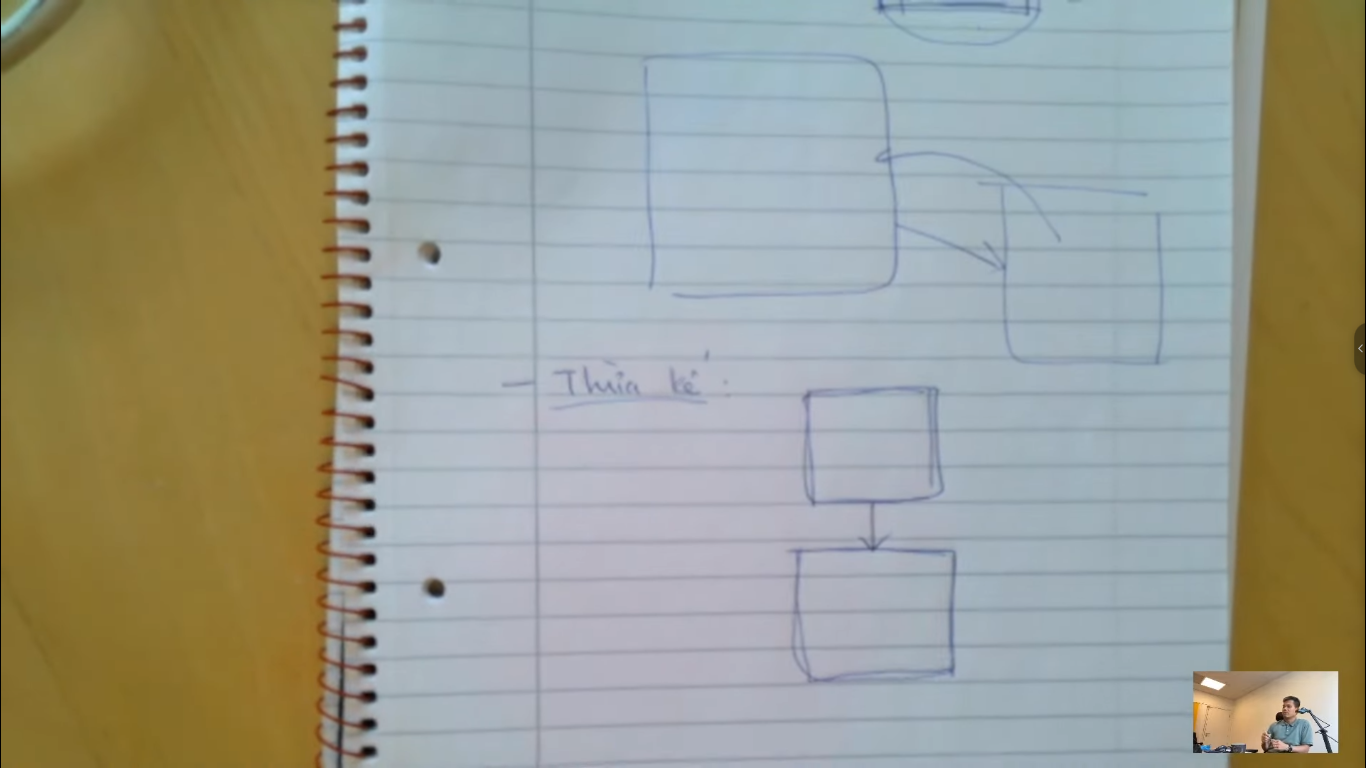 - Thừa kế: